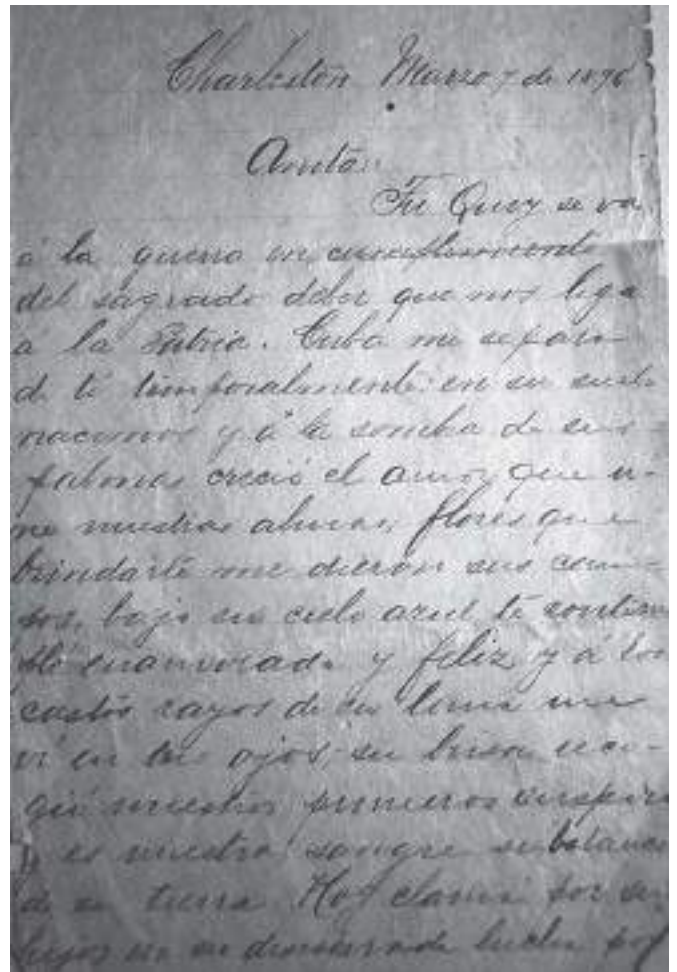 Charleston Marzo 7 de 1896
Anita:
Tu Quoy se va
á la guerra en cumplimiento
del sagrado deber que nos liga
a la Patria. Cuba me separa
de ti temporalmente: en su suelo
nacimos y á la sombra de sus
palmas creció el amor que u-
ne nuestras almas, flores que
brindarte me dieron sus cam-
pos, bajo su cielo azul te contem
plé enamorado y feliz y á los
castos rayos de su luna me
vi en tus ojos; su brisa reco-
gió nuestros primeros suspiros
y es nuestra sangre substancia
de su tierra. Hoy clama por sus
hijos en su denodada lucha por